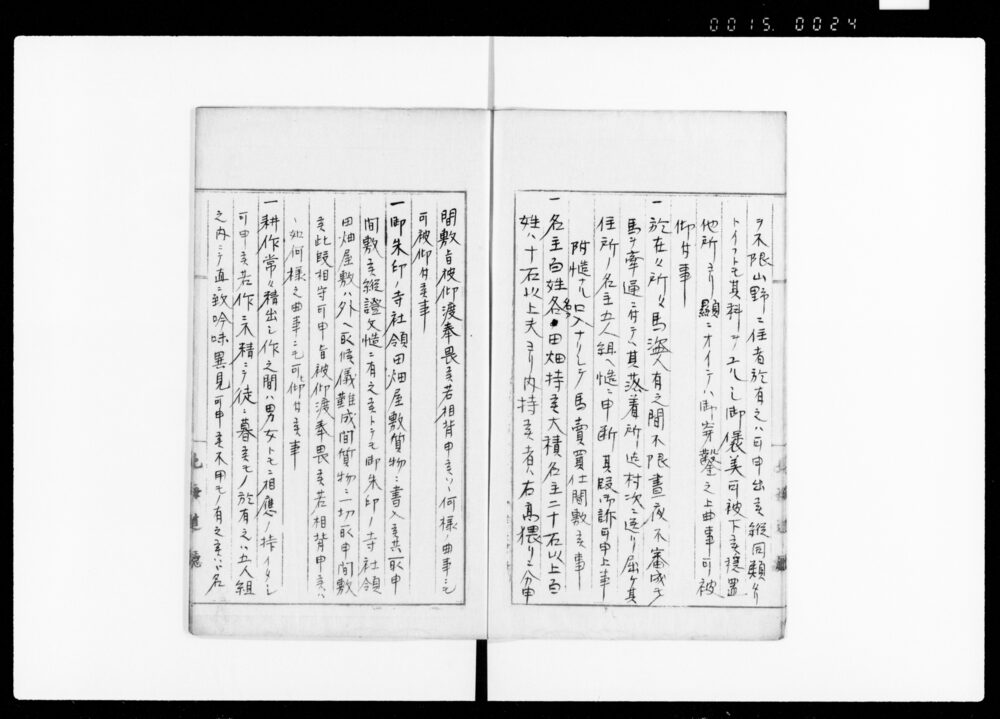 0015. 0024
ヲ不限山野ニ住者於有之ハ可申出候縦同類タリ
トイフトモ其科ヲユルシ御褒美可被下候隠置
他所ヨリ顕ニオイテハ御穿鑿之上曲事可被
仰付事
一於在々所々馬盗人有之間不限晝夜不審成ル
馬ヲ牽通ニ付テハ其落着所迄村次ニ送リ届ケ其
住所ノ名主五人組ヘ慥ニ申断其段御訴可申上事
附慥ナル口入ナクシテ馬賣買仕間敷候事
一名主百姓名田畑持候大積名主二十石以上百
姓ハ十石以上夫ヨリ内持候者ハ右高猥リニ分申
間敷旨被仰渡奉畏候若相背申候ハヽ何様ノ曲事ニモ
可被仰付候事
一御朱印ノ寺社領田畑屋敷質物ニ書入候共取申
間敷候縦證文慥ニ有之候トテモ御朱印ノ寺社領
田畑屋敷ハ外ヘ取候儀難成間質物ニ一切取申間敷
候此段相守可申旨被仰渡奉畏候若相背申候ハ
ヽ如何様之曲事ニモ可仰付候事
一耕作常々精出シ作之間ハ男女トモニ相應ノ拵イタシ
可申候若作ニ不精ニテ徒ニ暮候モノ於有之ハ五人組
之内ニテ直ニ致吟味異見可申候不用モノ有之候ハヽ名
北海道廳